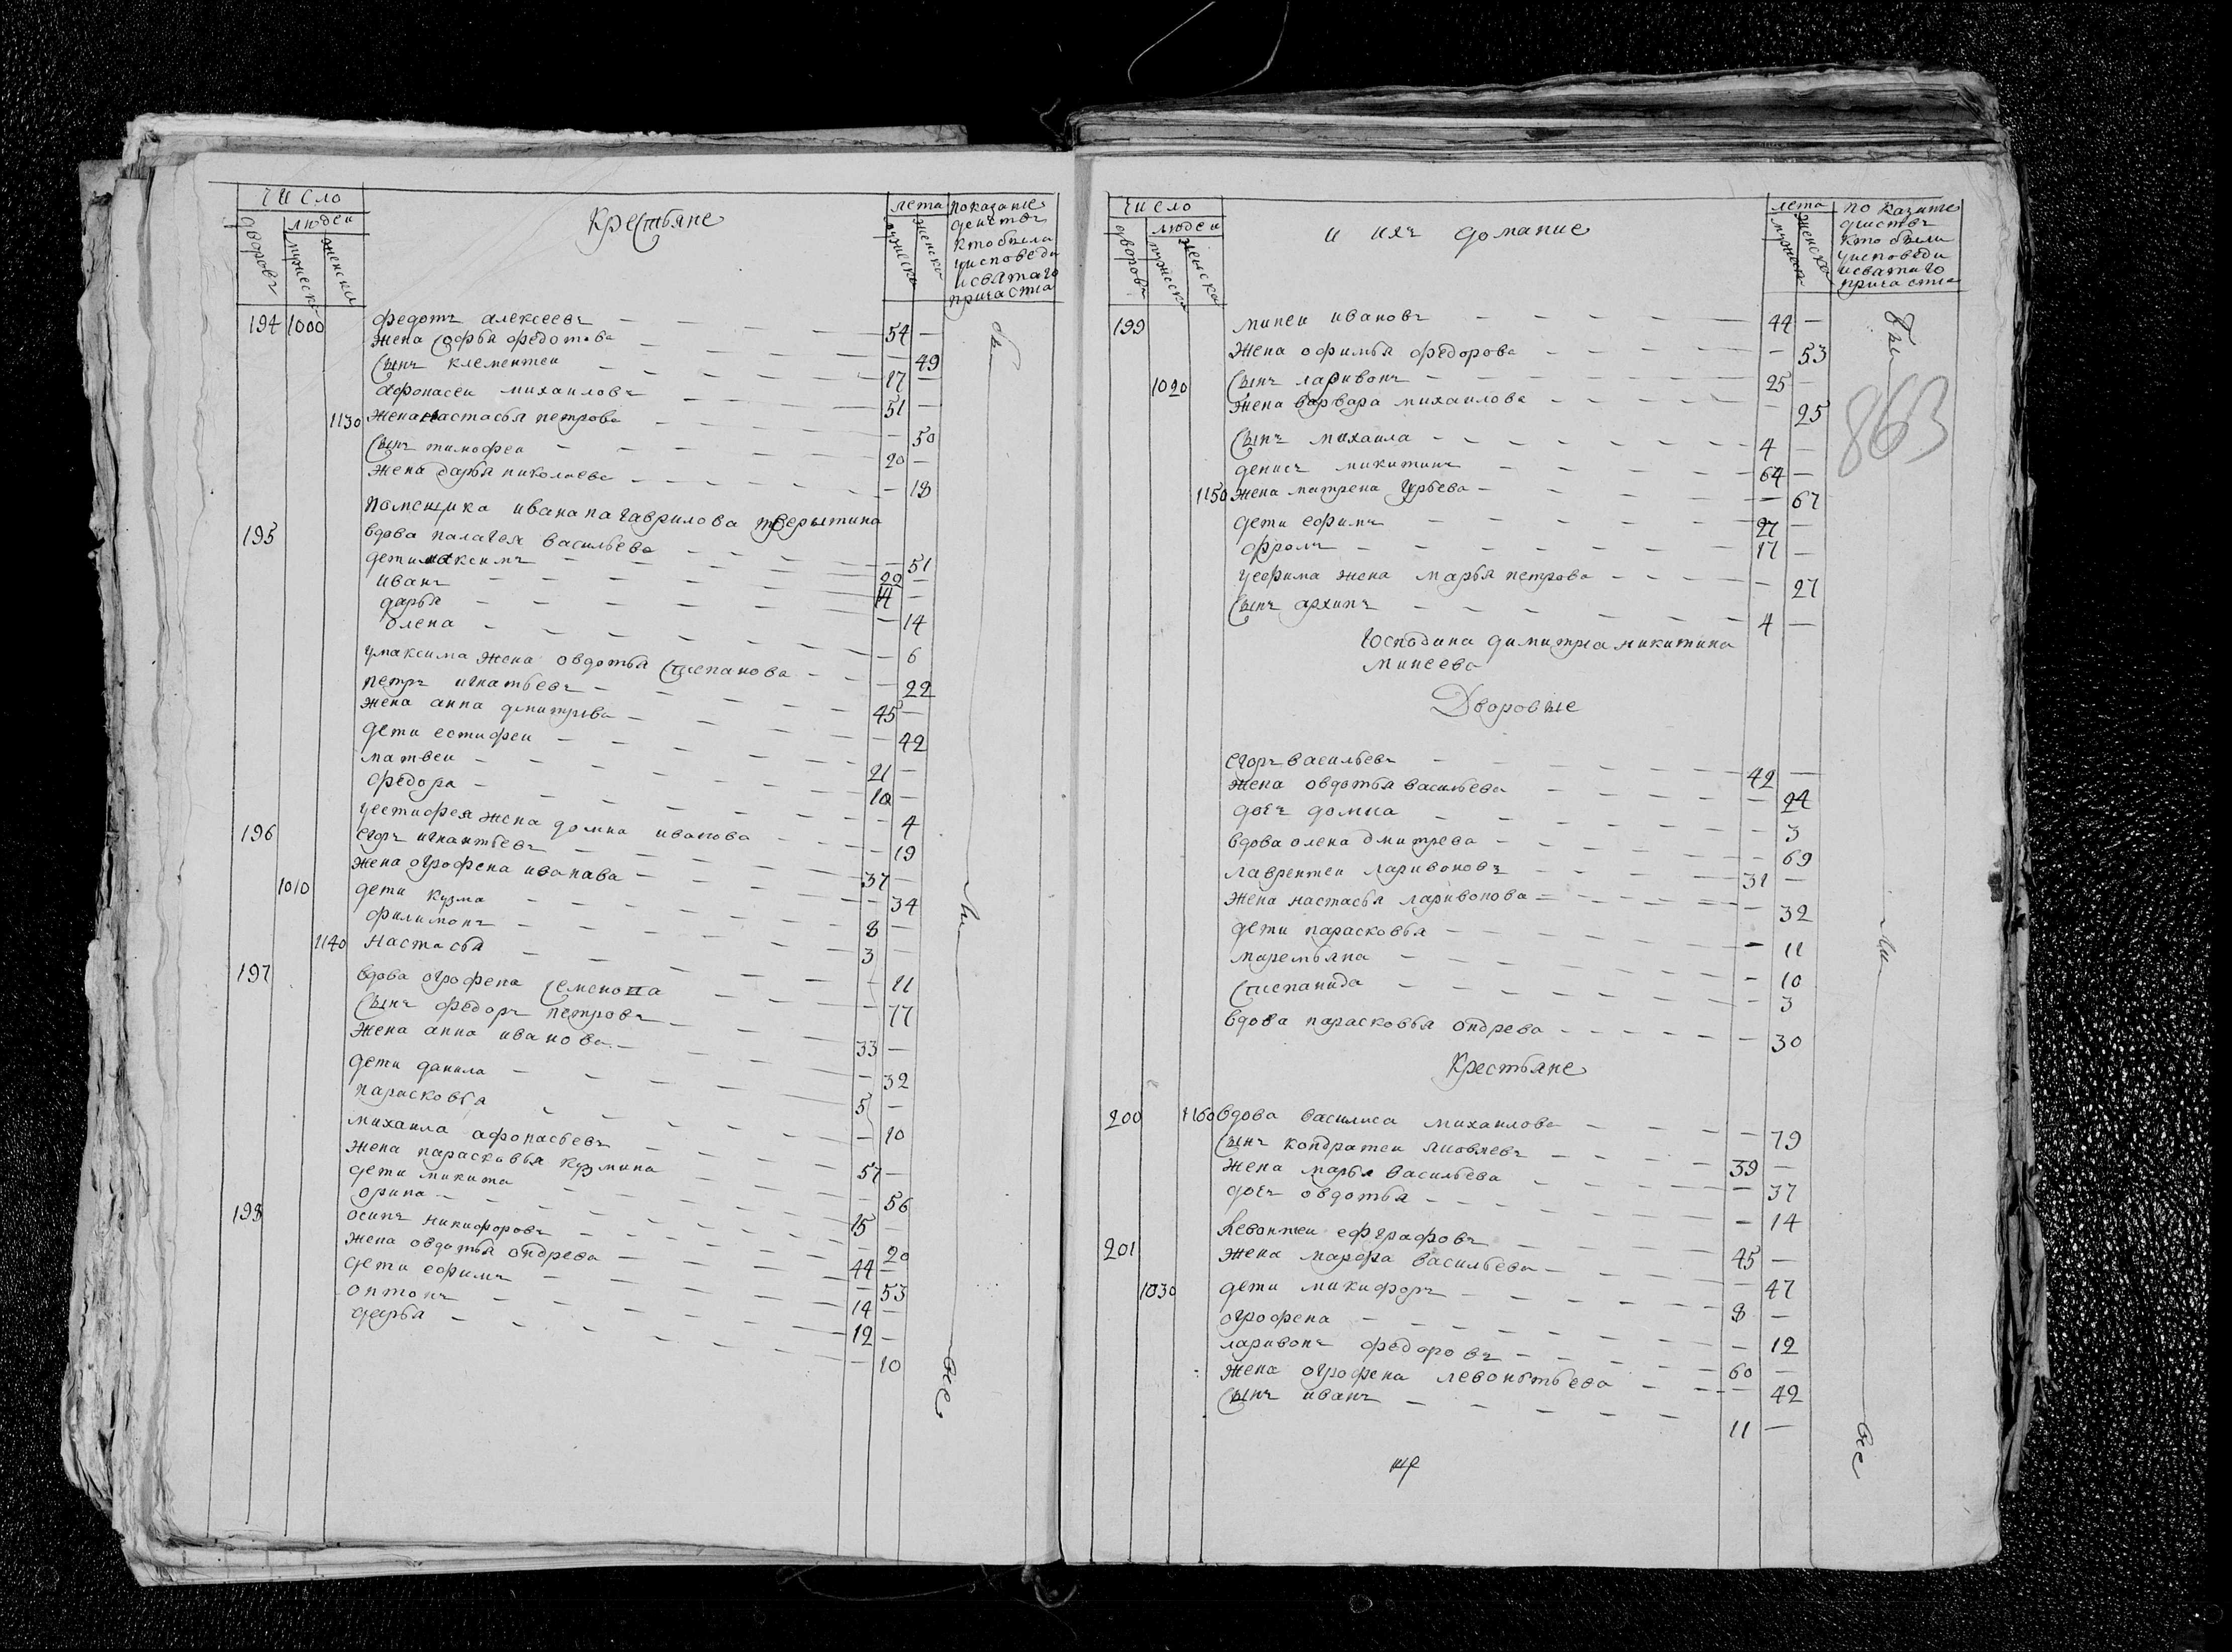 число
дворовъ
людеи
мужеска
женска
Крестьяне
лета
мужеска
женска
показание
деиствъ
кто были
уисповеди
исвятаго
причастиа
194 1000 федотъ алексеевъ 54
жена софья федотова 49
сынъ клементеи 17
афонасеи михаиловъ 51
1130 жена настасья петрова 50
сынъ тимофеи 20
жена дарья николаева 18
помещика ивана гаврилова тверытина
195 вдова палагея васильева 51
дети максимъ 20
иванъ 14
дарья 14
олена 6
умаксима жена овдотья степанова 22
петръ игнатьевъ 45
жена анна дмитрева 42
дети естифеи 21
матвеи 10
федора 4
уестифея жена домна иванова 19
196 егоръ игнантьевъ 37
жена огрофена иванава 34
1010 дети кузма 8
филимонъ 3
1140 настасья 11
197 вдова огрофена семенова 77
сынъ федоръ петровъ 33
жена анна иванова 32
дети данила 5
парасковья 10
михаила афонасьевъ 57
жена парасковья кузмина 56
дети микита 15
орина 20
198 осипъ никифоровъ 44
жена овдотья ондрева 53
дети ефимъ 14
онтонъ 12
дарья 10
бы
ли
все
число
дворовъ
людеи
мужеска
женска
и ихъ домание
лета
мужеска
женска
по казание
диствъ
кто были
уисповеди
исватаго
причастиа
863
199 минеи ивановъ 44
жена офимья федорова 53
1020 сынъ ларивонъ 25
жена варвара михаилова 25
сынъ михаила 4
денисъ микитинъ 64
1150 жена матрена гурьева 67
дети ефимъ 27
фролъ 17
уефима жена марья петрова 27
сынъ архипъ 4
господина димитриа никитина
минеева
Дворовые
егоръ васильевъ 42
жена овдотья васильева 24
дочь домна 3
вдова олена дмитрева 69
лаврентеи ларивоновъ 31
жена настасья ларивонова 32
дети парасковья 11
маремьяна 10
степанида 3
вдова парасковья ондрева 30
Крестьяне
200 1160 вдова василиса михаилова 79
сынъ кондратеи яковлевъ 39
жена марья васильева 37
дочь овдотья 14
левонтеи ефграфовъ 45
201 жена марфа васильева 47
1030 дети микифоръ 8
огрофена 12
ларивонъ федоровъ 60
жена огрофена левоньтьева 42
сынъ иванъ 11
бы
ли
все